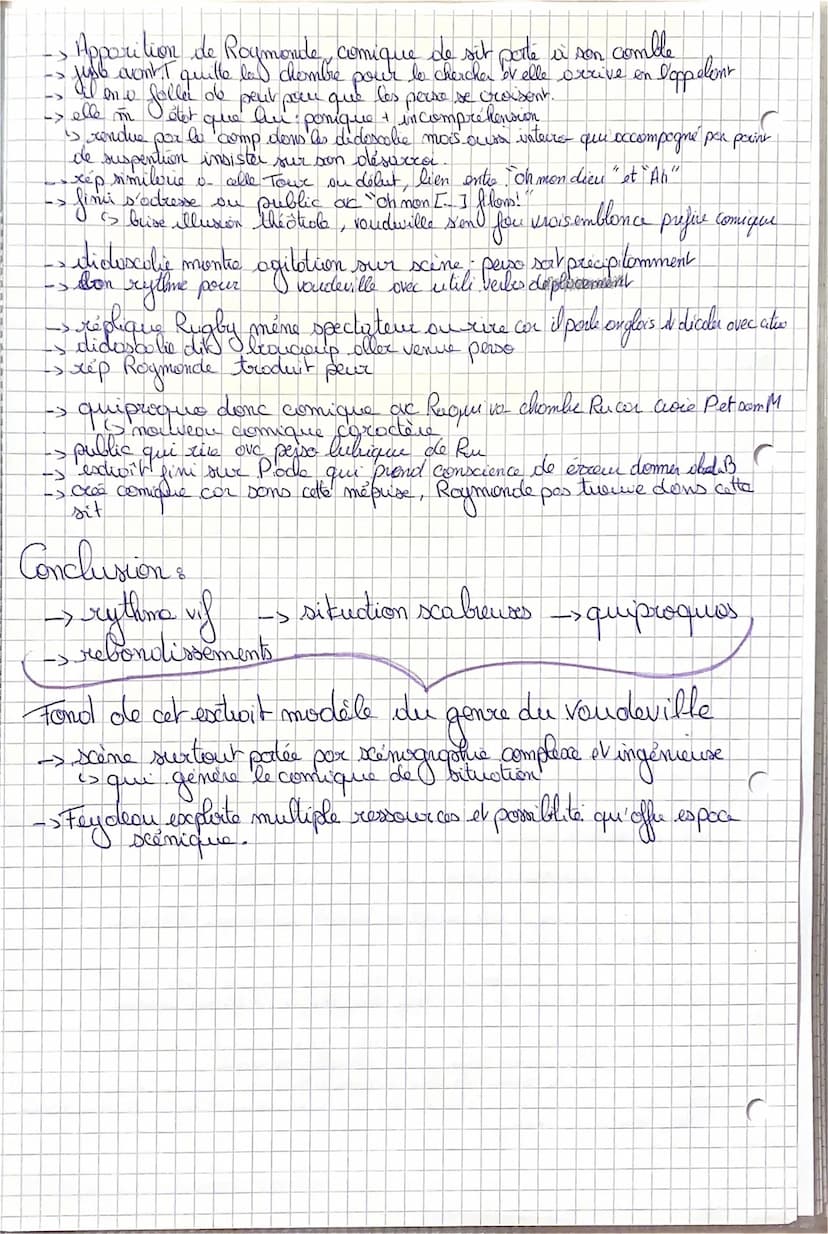 -> Apparition de Raymonde, comique de sit porté à son comble
-> juste avant T quitte la chambre pour la chercher et elle arrive en l'appelant
-> il en a fallu de peut pour que les perso se croisent.
-> elle m̄ état que lui : panique + incompréhension
↳ rendue par la comp dans les didascalie mais aussi interro qui accompagné par point
de suspention insister sur son désarroi.
-> rép similaire a celle Tour au début, lien entre "oh mon dieu" et "Ah"
-> fini s'adresse au public ac "oh mon [...] filons!"
↳ brise illusion théâtrale, vaudeville s'en fou vraisemblance préfère comique
-> didascalie montre agitation sur scène : perso sort précipitamment
-> bon rythme pour vaudeville avec utili verbes déplacement
-> réplique Rugby mène spectateur au rire car il parle anglais et décaler avec
-> didascalie dit beaucoup aller venue perso
-> rép Raymonde traduit peur
-> quiproquo donc comique ac R qui va chambre Ru car croie Pet
↳ nouveau comique caractère
-> public qui rire avc perso lubrique de Ru
-> extrait fini sur P. de qui prend conscience de érreur donner
-> créé comique car sans cette méprise, Raymonde pas trouve dans cette
sit
Conclusion :
-> rythme vif -> situction scabreuses -> quiproquos
-> rebondissements
Fond de cet extrait modèle du genre du vaudeville
-> scène surtout portée par scénographie complexe et ingénieuse
↳ qui génère le comique de situation
-> Feydeau exploite multiple ressources et possibilité qu'offre espace
scénique.